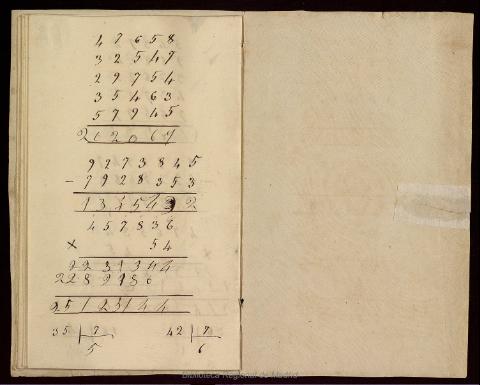 4 7 6 5 8
3 2 5 4 7
2 9 7 5 4
3 5 4 6 3
5 7 9 4 5
2 0 2 0 6 7
9 2 7 3 8 4 5
- 7 9 2 8 3 5 3
1 3 4 5 4 9 2
4 5 7 8 3 6
× 5 4
2 2 3 1 3 4 4
2 2 8 9 1 8 0
2 5 1 2 3 1 4 4
35 | 7 42 | 7
5 6
Biblioteca Regional de Madrid